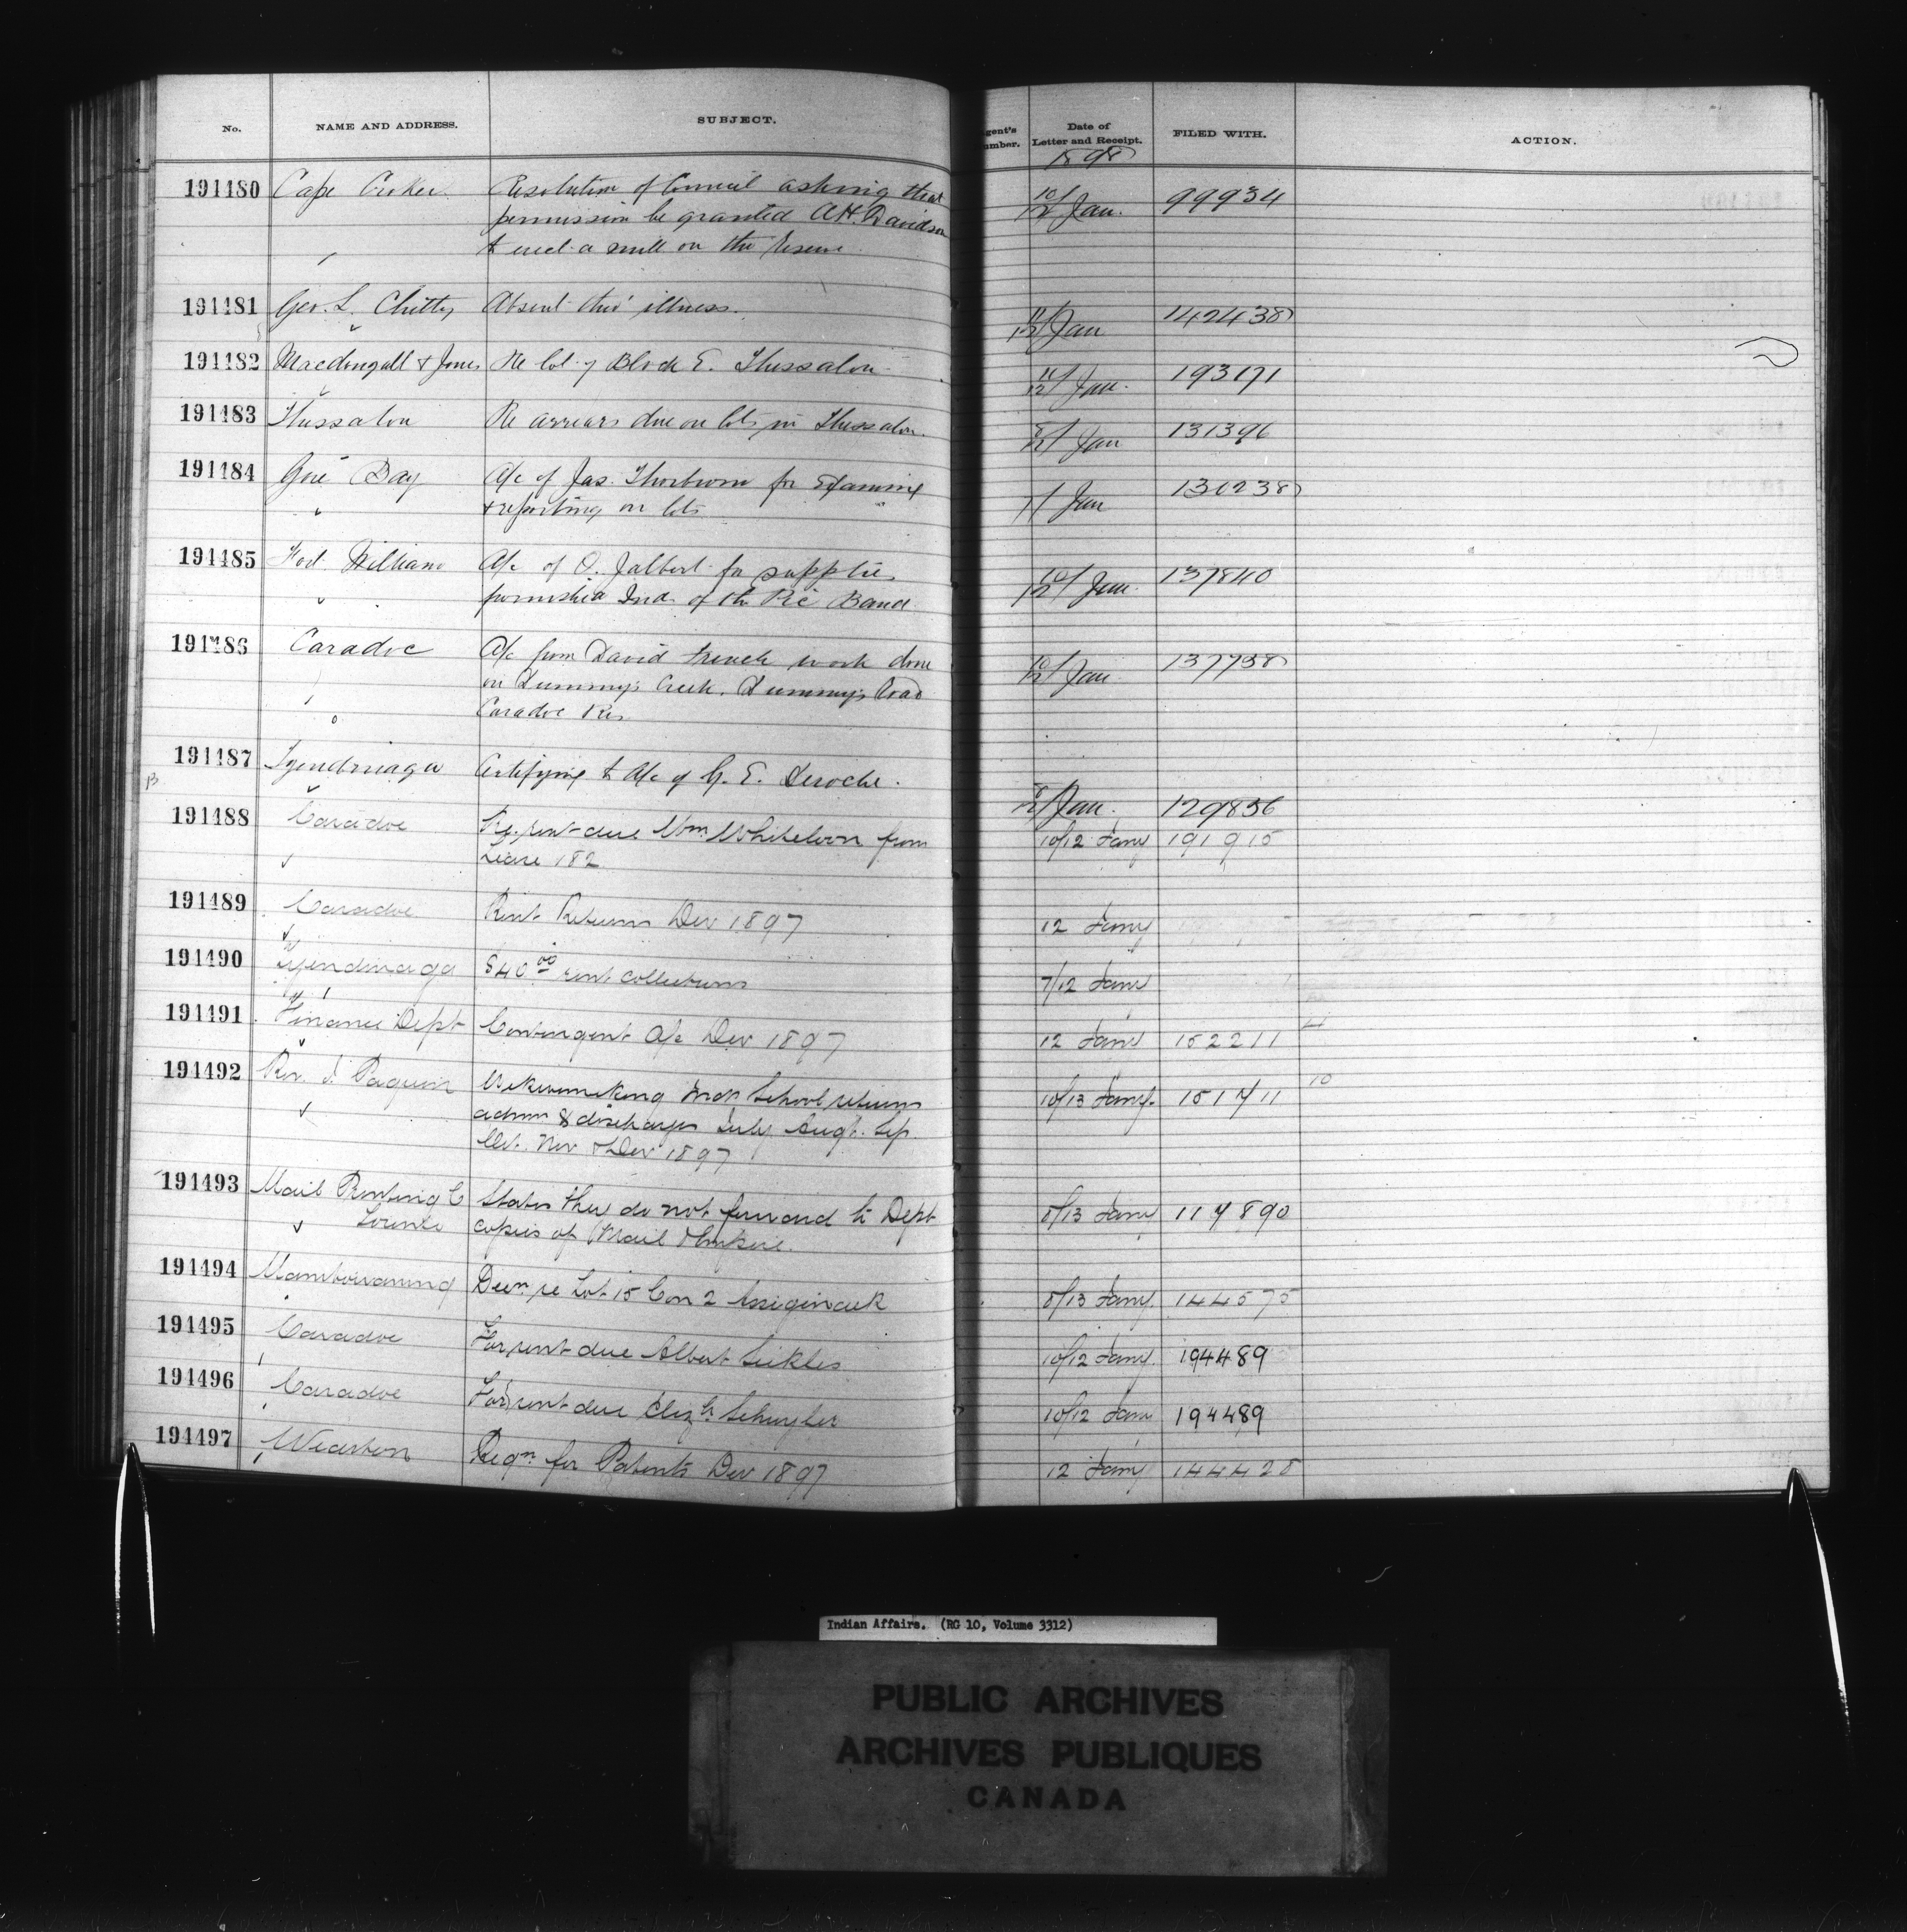 No. NAME AND ADDRESS. SUBJECT. Agent's Number. Date of Letter and Receipt. FILED WITH. ACTION.
1898
191480 Cape Croker Resolution of Council asking that 10/12 Jan. 99934
permission be granted A H Davidson
to erect a mill on the Reserve
191481 Geo. L. Chitty Absent thro' illness. 11/12 Jan 142438
191482 Macdougall & Jones Re lot 7 Block E. Thessalon 11/12 Jan. 193171
191483 Thessalon Re arrears due on lots in Thessalon. 8/12 Jan 131396
191484 Gore Bay A/c of Jas. Thorburn for Examining Jan 130238
& reporting on lots
191485 Fort William A/c of O. Jalbert for supplies 10/12 Jan. 137840
furnished Ind. of the Pic Band
191486 Caradoc A/c from David French work done 10/12 Jan 137738
on Dummy's Creek. Dummy's Road
Caradoc Res
191487 Tyendinaga Certifying to A/c of G. E. Deroche. Jan. 129836
191488 Caradoc Re rent due Wm Whiteloon from 10/12 Jany 191915
Lease 182
191489 Caradoc Rent Returns Dec 1897 12 Jany
191490 Tyendinaga $40.00 rent collections 7/12 Jany
191491 Finance Dept Contingent A/c Dec 1897 12 Jany 152211 4
191492 Rev. J. Paquin Wikwemikong Indn School returns 10/13 Jany. 151711 10
admn & discharges July Augt. Sep.
Oct. Nov & Dec 1897
191493 Mail Printing Co States they do not forward to Dept 8/13 Jany 117890
Toronto copies of Mail & Empire.
191494 Manitowaning Decn re Lot 15 Con 2 Assiginack 8/13 Jany. 144575
191495 Caradoc For rent due Albert Sickles 10/12 Jany. 194489
191496 Caradoc For rent due Elizh Schuyler 10/12 Jany 194489
191497 Wiarton Reqn for Patents Dec 1897 12 Jany 144428
Indian Affairs. (RG 10, Volume 3312)
PUBLIC ARCHIVES
ARCHIVES PUBLIQUES
CANADA